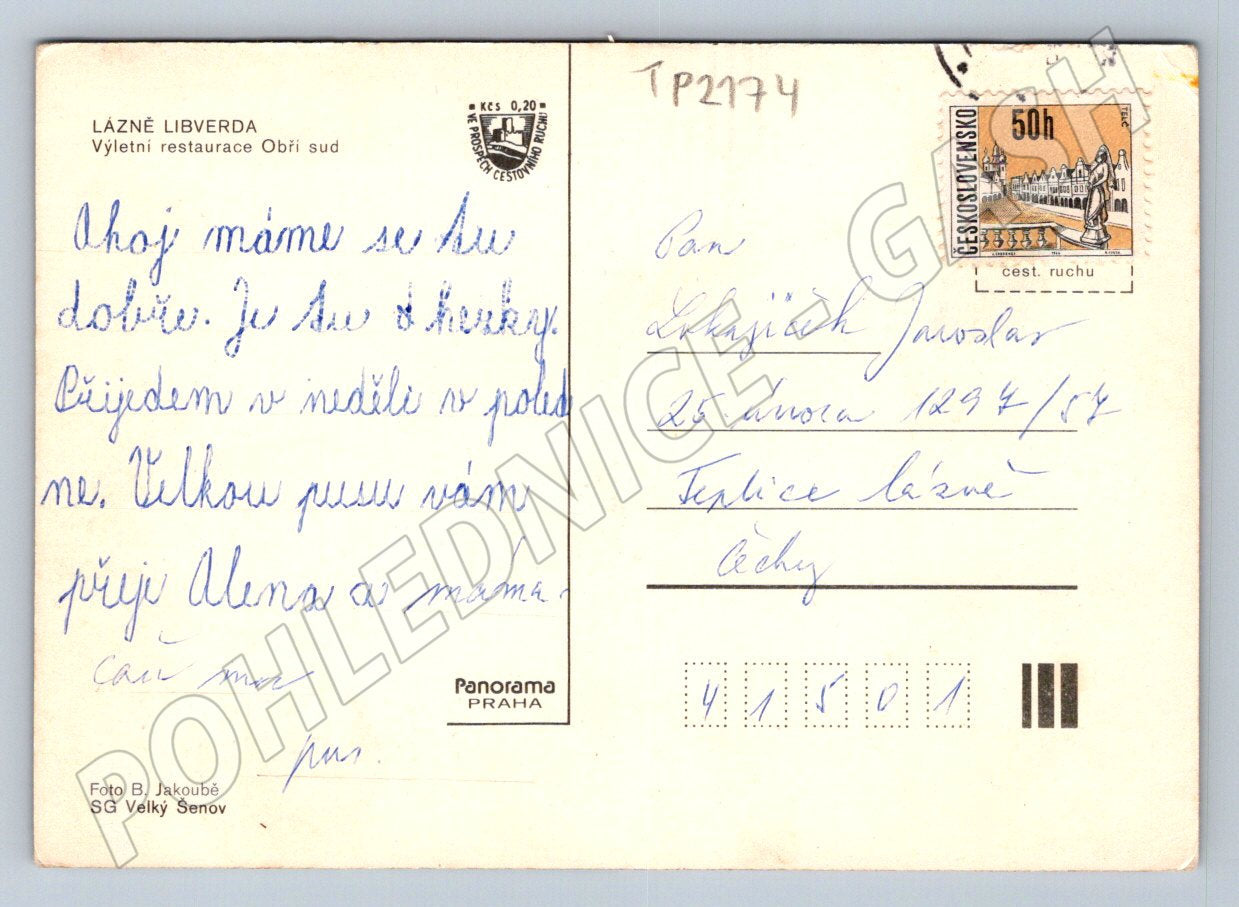 LÁZNĚ LIBVERDA
Výletní restaurace Obří sud
Kčs 0,20
VE PROSPĚCH CESTOVNÍHO RUCHU
Ahoj máme se tu
dobře. Je tu hezky.
Přijedem v neděli v poled
ne. Velkou pusu vám
přeje Alena a máma.
pus.
Panorama
PRAHA
Foto B. Jakoubě
SG Velký Šenov
TP2174
ČESKOSLOVENSKO
50h
TELČ
cest. ruchu
Pan
Lokajíček Jaroslav
25. února 1297/57
Teplice lázně
Čechy
41501
POHLEDNICE - GASH